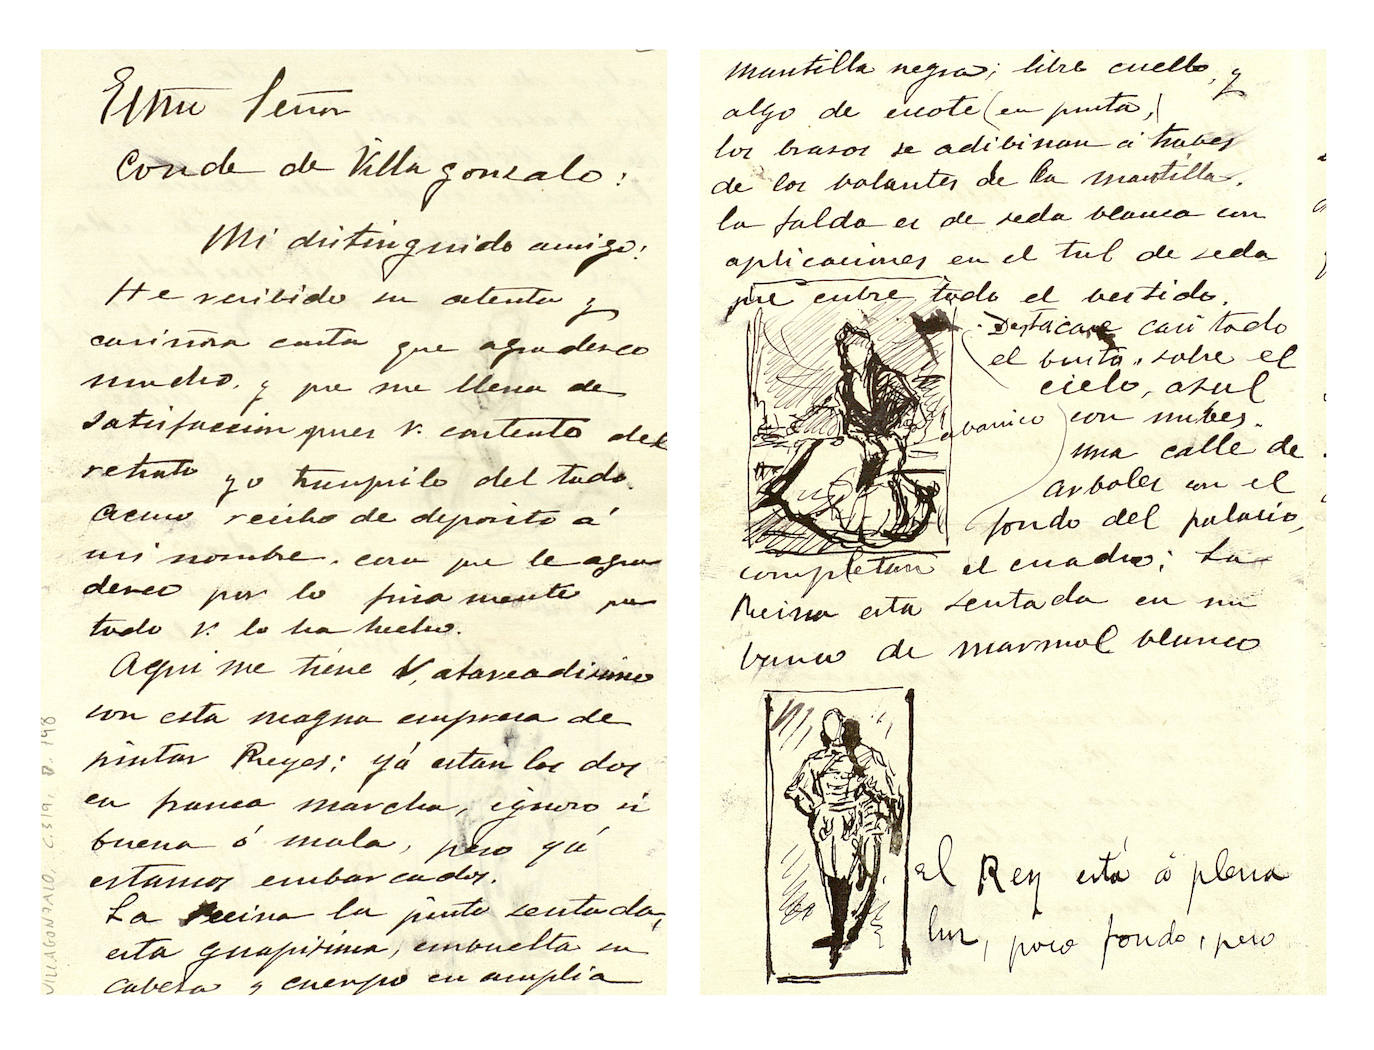 Exmo Señor
Conde de Villagonzalo:
Mi distinguido amigo:
He recibido su atenta y
cariñosa carta que agradesco
mucho, y que me llena de
satisfaccion pues V. contento del
retrato yo tranquilo del todo.
Acuso recibo de deposito á
mi nombre, cosa que le agra
desco por lo finamente que
todo V. lo ha hecho.
Aqui me tiene V. atareadisimo
con esta magna empresa de
pintar Reyes; yá estan los dos
en franca marcha, ignoro si
buena ó mala, pero yá
estamos embarcados.
La Reina la pinto sentada,
esta guapisima, embuelta su
cabesa y cuerpo en amplia
VILLAGONZALO, C.319, D.198
mantilla negra; libre cuello, y
algo de escote (en punta,)
los brasos se adibinan á trabes
de los bolantes de la mantilla.
la falda es de seda blanca con
aplicaciones en el tul de seda
que cubre todo el bestido.
Destácase casi todo
el busto, sobre el
cielo, asul
abanico
con nubes.
una calle de
arboles con el
fondo del palacio,
completan el cuadro; La
Reina esta sentada en un
banco de marmol blanco
el Rey está á plena
luz, poco fondo, pero